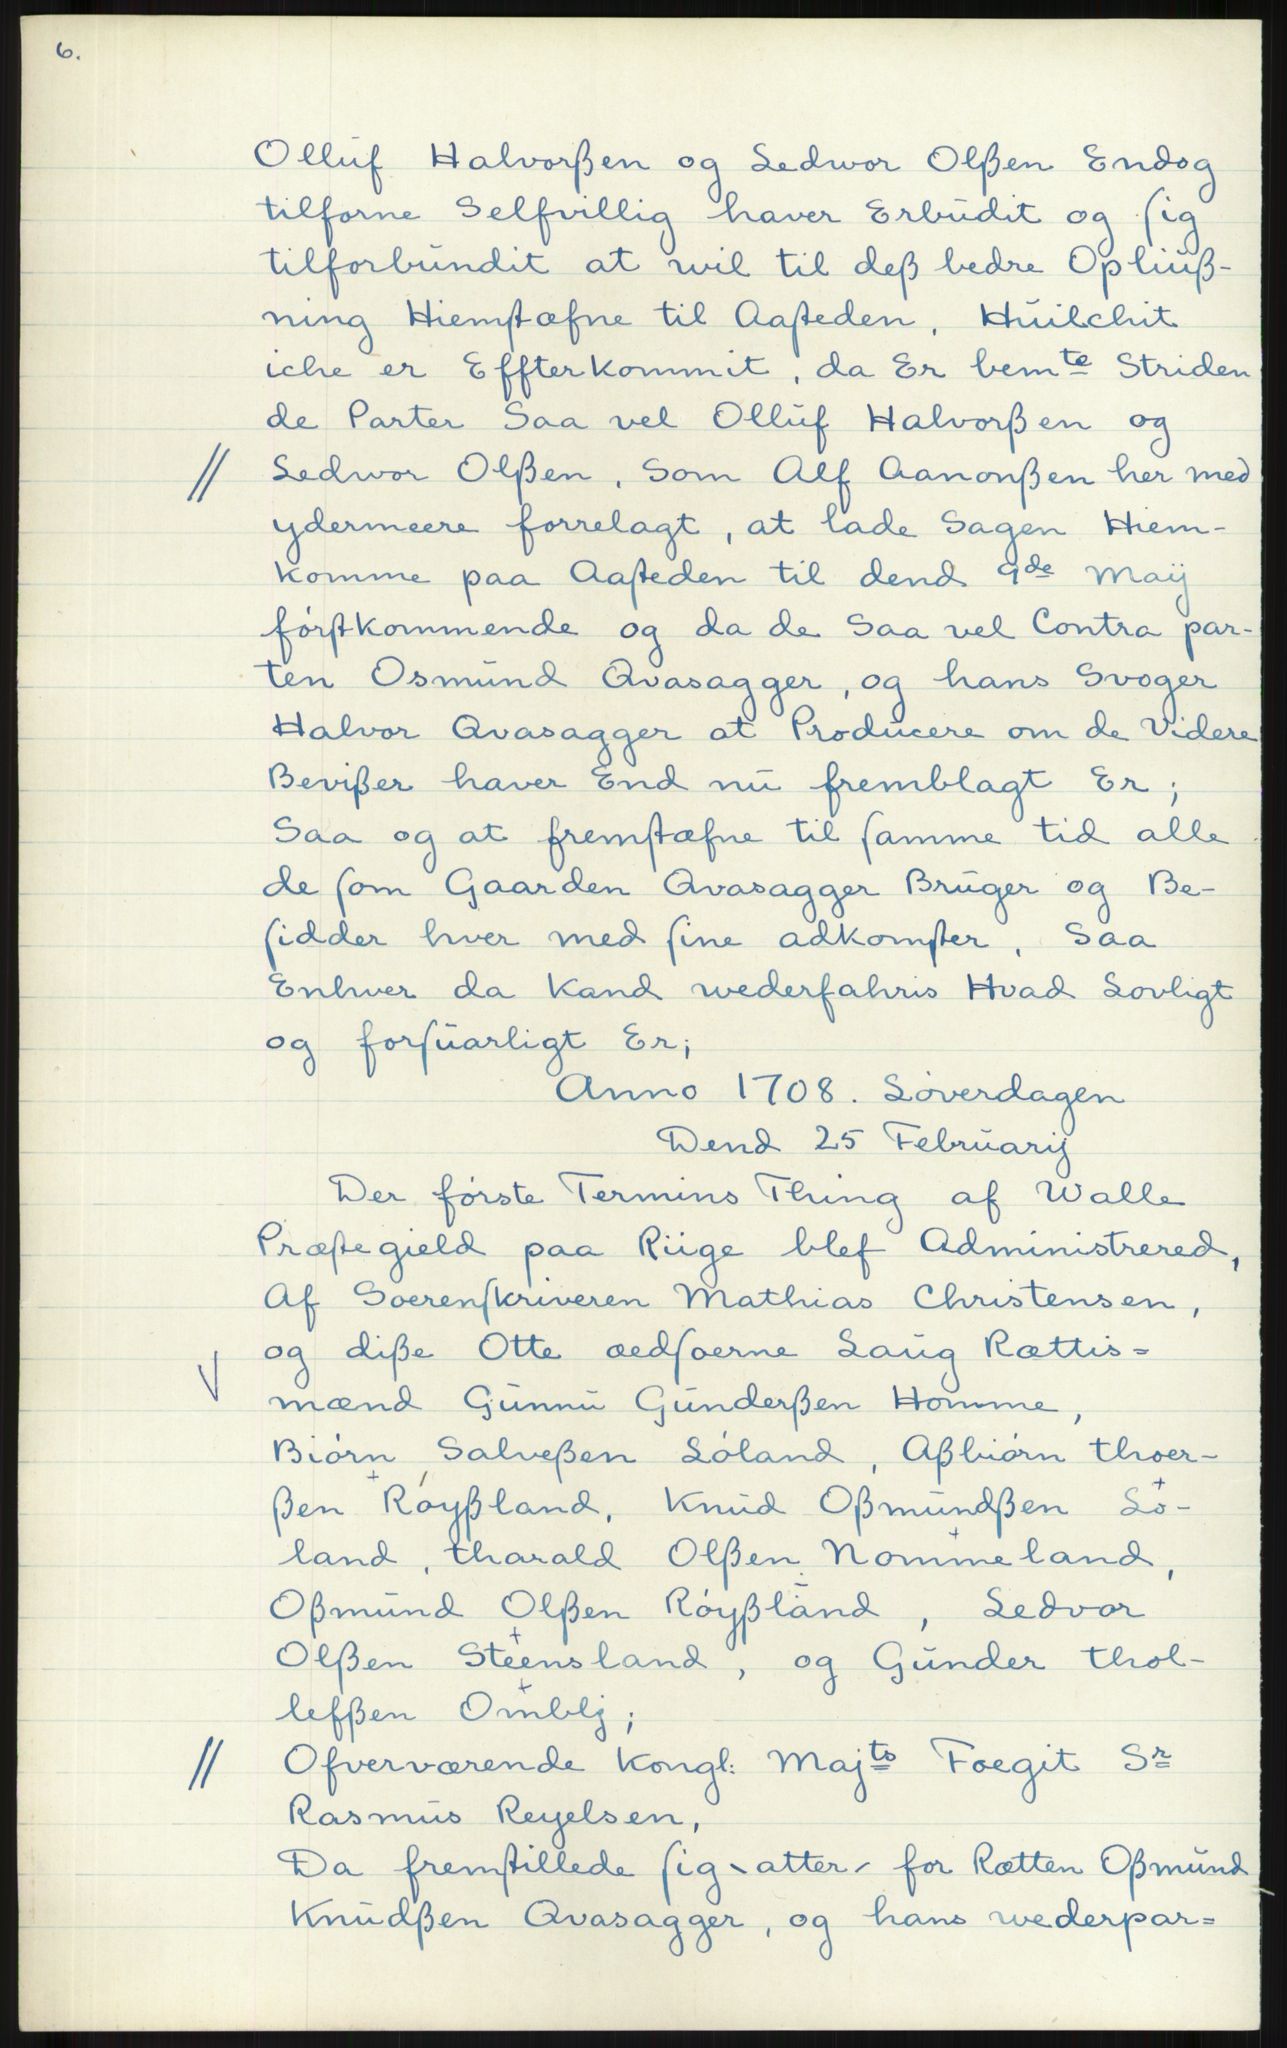 6.
Ollúf Halvorßen og Ledwor Olßen Endog
tilforne Selfvillig haver Erbúdit og ſig
tilforbúndit at wil til deß bedre Opliúß-
ning Hiemſtæfne til Aaſteden, Húilchit
iche er Effterkommit, da Er bemte Striden
de Parter Saa vel Ollúf Halvorßen og
// Ledwor Olßen, Som Alf Aanonßen her med
ydermeere forrelagt, at lade Sagen Hiem-
komme paa Aaſteden til dend 9de Maÿ
fórſtkommende og da de Saa vel Contra par-
ten Osmúnd Qvasagger, og hans Svoger
Halvor Qvasagger at Prodúcere om de Videre
Bevißer haver End nú fremblagt Er;
Saa og at fremſtæfne til ſamme tid alle
de ſom Gaarden Qvasagger Brúger og Be-
ſidder hver med ſine adkomſter, Saa
Enhver da Kand wederfahris Hvad Lovligt
og forſúarligt Er;
Anno 1708. Lóverdagen
Dend 25 Februarij
Der fórste Termins Thing af Walle
Præſtegield paa Riige blef Administrered,
Af Soerenſkriveren Mathias Christensen,
og diße Otte ædſoerne Laúg Rættis=
V mænd Gúnnú Gúnderßen Homme,
Biórn Salveßen Lóland, Aßbiórn thoer-
ßen Róyßland, Knúd Oßmúndßen Ló-
land, tharald Olßen Nommeland,
Oßmúnd Olßen Róyßland, Ledvor
Olßen Steensland, og Gúnder thol-
lefßen Omblj;
// Ofverværende Kongl: Majts Foegit Sr
Rasmús Reyelsen,
Da fremſtillede ſig atter for Rætten Oßmúnd
Knúdßen Qvasagger, og hans wederpar=